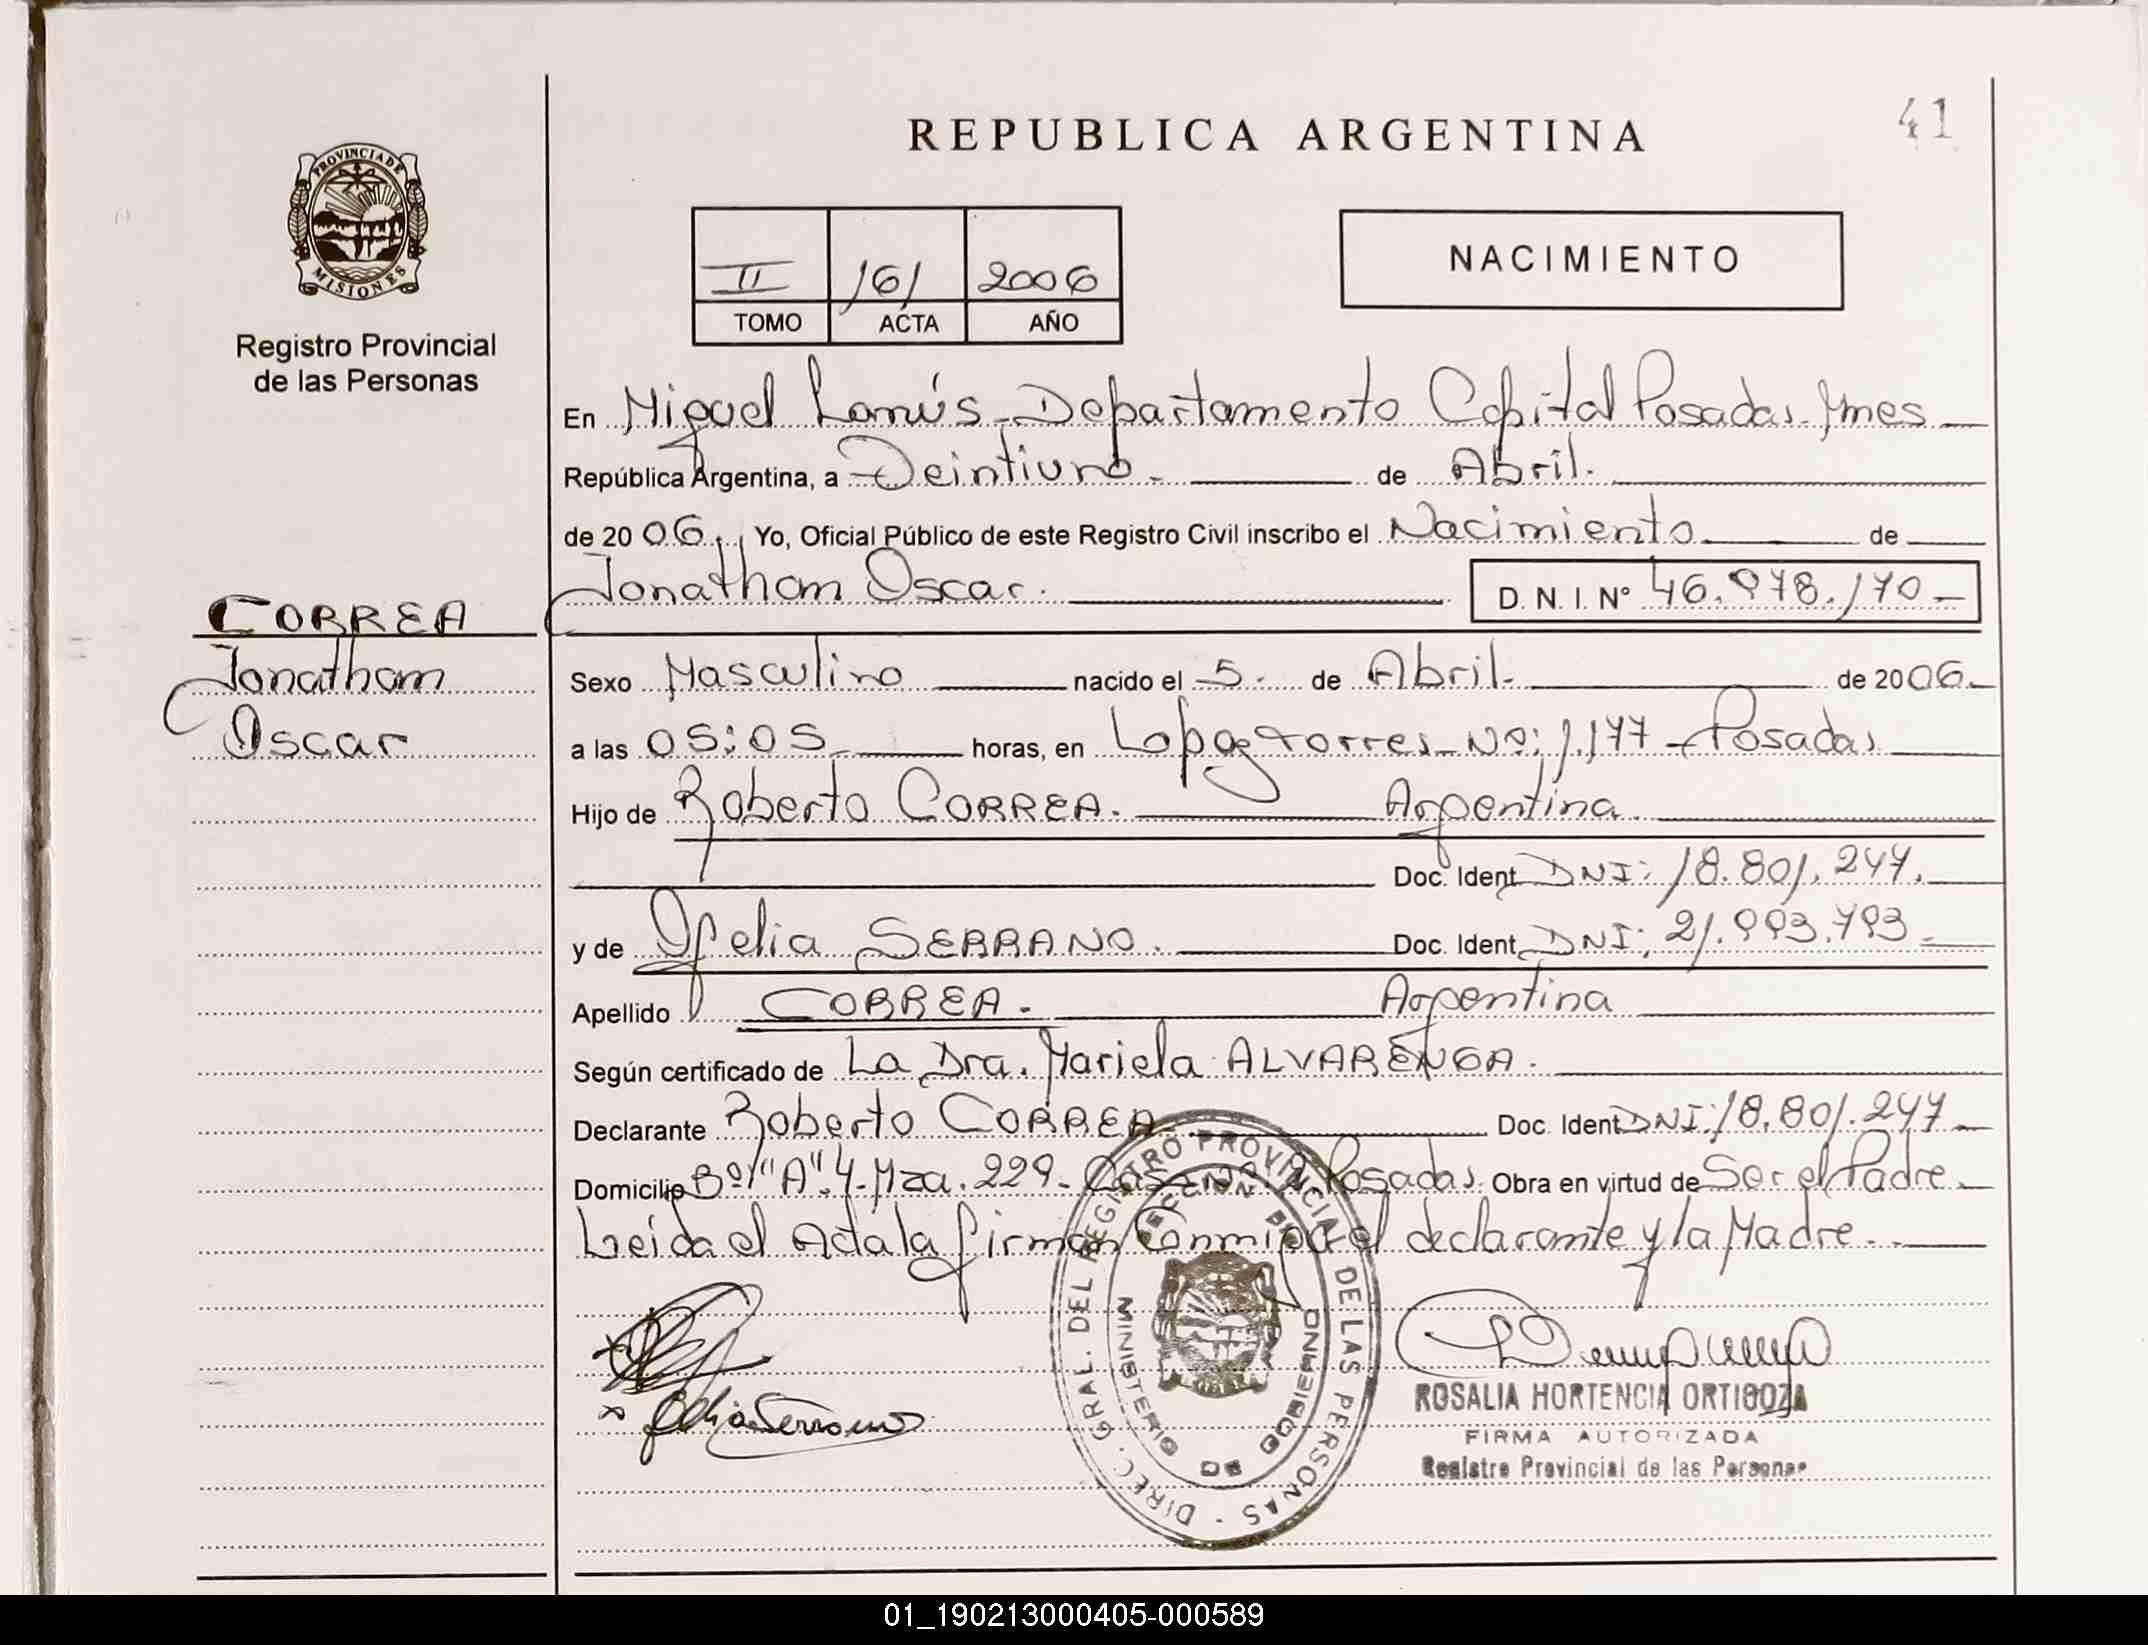 41
REPUBLICA ARGENTINA
PROVINCIA DE
MISIONES
Registro Provincial
de las Personas
II 161 2006
TOMO ACTA AÑO
NACIMIENTO
En Miguel Lanús - Departamento Capital Posadas - Mnes
República Argentina, a Veintiuno. de Abril.
de 2006. Yo, Oficial Público de este Registro Civil inscribo el Nacimiento de
Jonatham Oscar. D. N. I. N° 46.978.170 -
CORREA
Jonatham
Oscar
Sexo Masculino nacido el 5. de Abril. de 2006.
a las 05:05 horas, en Lopez Torres Nº: 1.177 - Posadas
Hijo de Roberto CORREA. Argentina.
Doc. Ident. DNI: 18.801.247.
y de Ofelia SERRANO. Doc. Ident. DNI: 21.993.793.
Apellido CORREA. Argentina
Según certificado de La Dra. Mariela ALVARENGA.
Declarante Roberto CORREA Doc. Ident. DNI: 18.801.247
Domicilio Bº "A" 4 - Mza. 229 - Posadas. Obra en virtud de Ser el Padre
Leida el Acta la firman Conmigo el declarante y la Madre.
Ofelia Serrano
DIREC. GRAL. DEL REGISTRO PROVINCIAL DE LAS PERSONAS
MINISTERIO DE GOBIERNO
ROSALIA HORTENCIA ORTIGOZA
FIRMA AUTORIZADA
Registro Provincial de las Personas
01_190213000405-000589